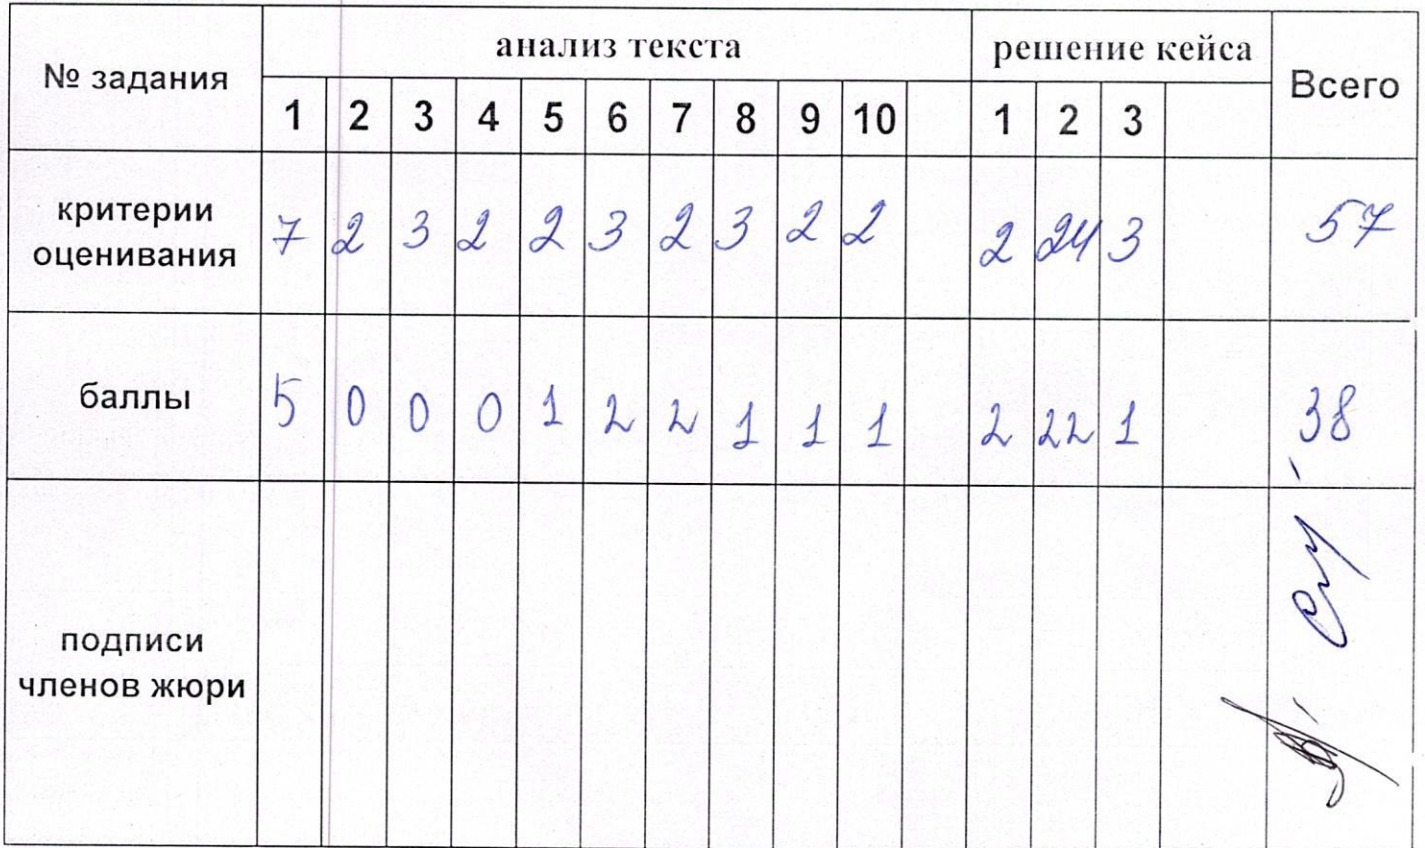 № задания анализ текста решение кейса Всего
1 2 3 4 5 6 7 8 9 10 1 2 3
критерии оценивания 7 2 3 2 2 3 2 3 2 2 2 24 3 57
баллы 5 0 0 0 1 2 2 1 1 1 2 22 1 38
подписи
членов жюри